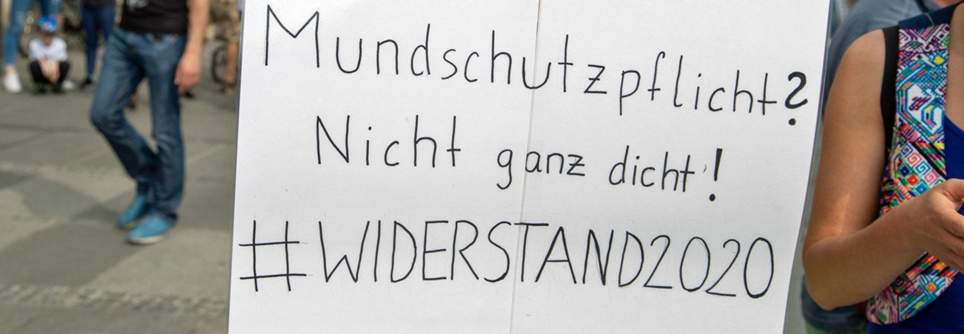 Mundschutzpflicht?
Nicht ganz dicht!
#WIDERSTAND2020